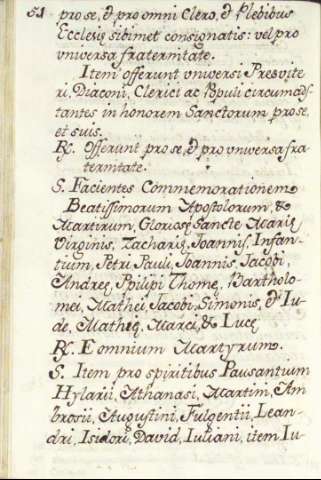 51 pro se, & pro omni Clero, & Plebibus
Ecclesię sibimet consignatis: vel pro
vniversa fraternitate.
Item offerunt vniversi Presvite
ri, Diaconi, Clerici ac Populi circumads-
tantes in honorem Sanctorum pro se,
et suis.
R. Offerunt pro se, & pro vniversa fra
ternitate.
S. Facientes Commemorationem
Beatissimorum Apostolorum, &
Martirum, Gloriosę Sanctę Marię
Virginis, Zacharię, Joannis, Infan-
tium, Petri, Pauli, Joannis, Jacobi,
Andreę, Philipi Thomę, Bartholo-
mei, Mathei, Jacobi, Simonis, & Iu-
de, Mathię, Marci, & Lucę
R. Et omnium Martyrum.
S. Item pro spiritibus Pausantium
Hylarii, Athanasi, Martini, Am
brosii, Augustini, Fulgentii, Lean-
dri, Isidori, David, Iuliani, item Iu-